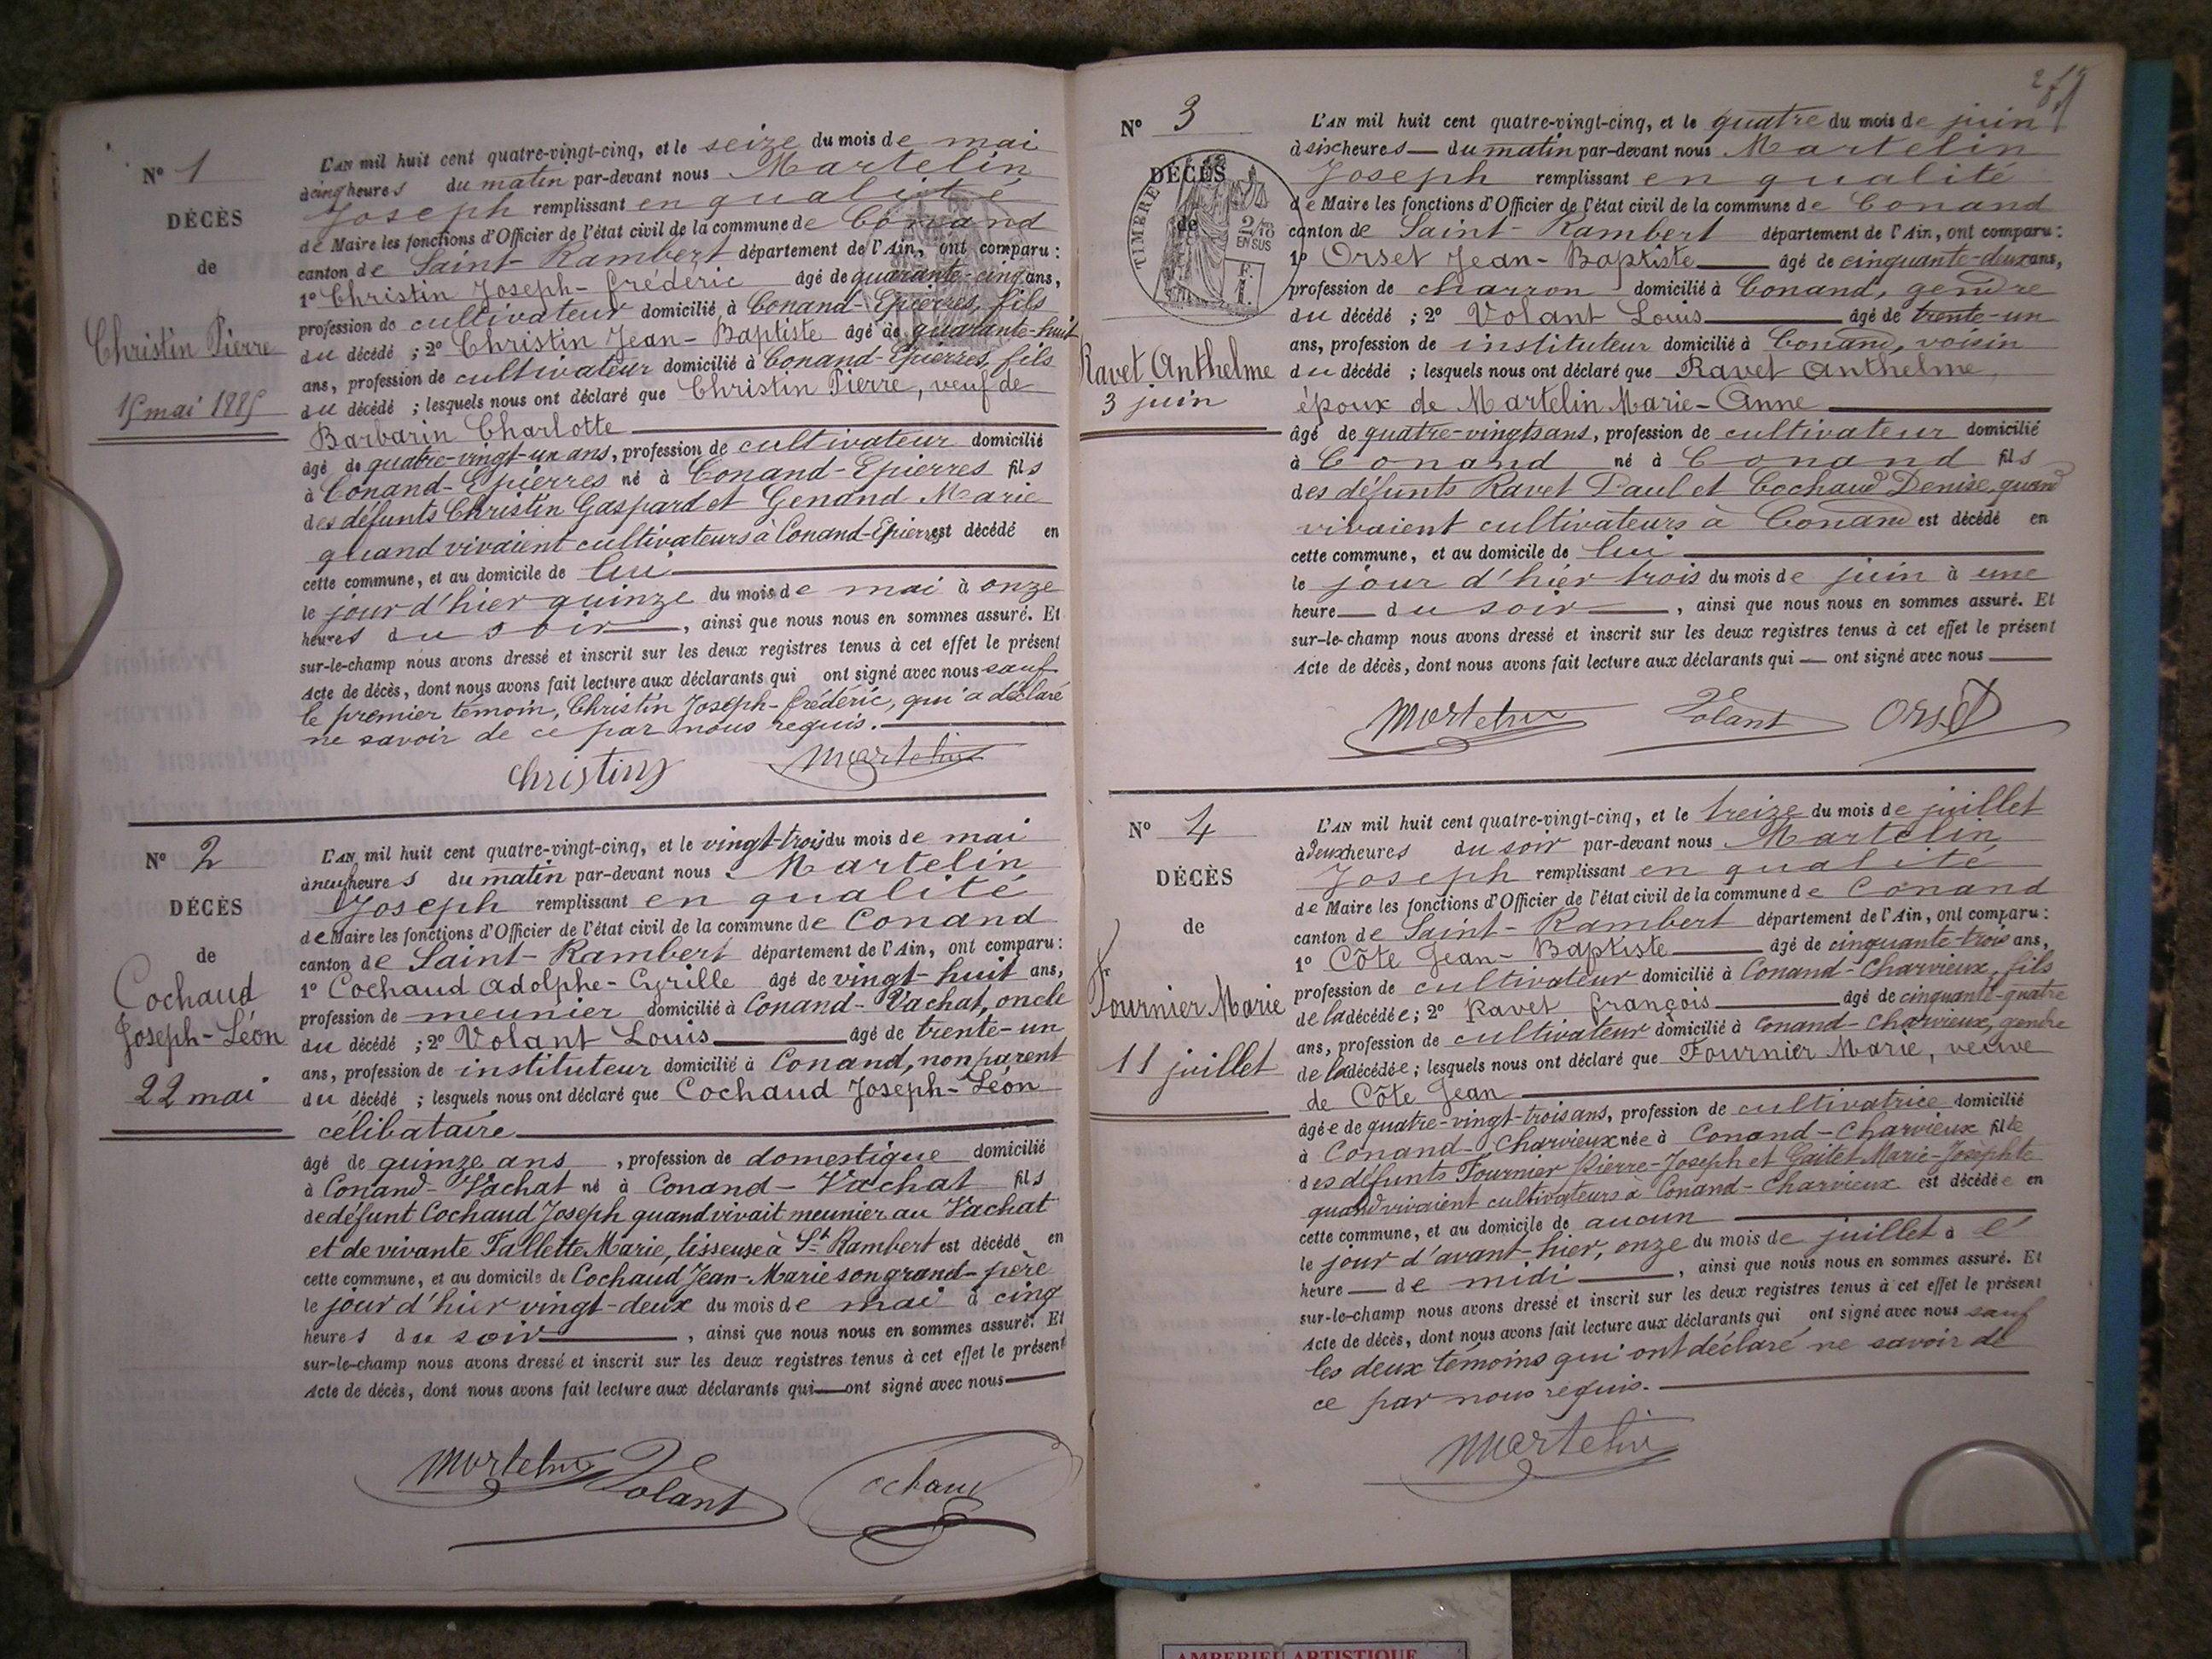 N° 1
DÉCÈS
de
Christin Pierre
15 mai 1885
L'AN mil huit cent quatre-vingt-cinq, et le seize du mois de mai
à cinq heures du matin par-devant nous Martelin
Joseph remplissant en qualité
de Maire les fonctions d'Officier de l'état civil de la commune de Conand
canton de Saint-Rambert département de l'Ain, ont comparu :
1° Christin Joseph-frédéric âgé de quarante-cinq ans,
profession de cultivateur domicilié à Conand-Epierres, fils
du décédé ; 2° Christin Jean-Baptiste âgé de quarante-huit
ans, profession de cultivateur domicilié à Conand-Epierres, fils
du décédé ; lesquels nous ont déclaré que Christin Pierre, veuf de
Barbarin Charlotte
âgé de quatre-vingt-un ans, profession de cultivateur domicilié
à Conand-Epierres né à Conand-Epierres fils
des défunts Christin Gaspard et Genand Marie
quand vivaient cultivateurs à Conand-Epierres est décédé en
cette commune, et au domicile de lui
le jour d'hier quinze du mois de mai à onze
heures du soir, ainsi que nous nous en sommes assuré. Et
sur-le-champ nous avons dressé et inscrit sur les deux registres tenus à cet effet le présent
Acte de décès, dont nous avons fait lecture aux déclarants qui ont signé avec nous sauf
le premier témoin, Christin Joseph-frédéric, qui a déclaré
ne savoir de ce par nous requis.
Christin Martelin
N° 2
DÉCÈS
de
Cochaud
Joseph-Léon
22 mai
L'AN mil huit cent quatre-vingt-cinq, et le vingt-trois du mois de mai
à neuf heures du matin par-devant nous Martelin
Joseph remplissant en qualité
de Maire les fonctions d'Officier de l'état civil de la commune de Conand
canton de Saint-Rambert département de l'Ain, ont comparu :
1° Cochaud Adolphe-Cyrille âgé de vingt-huit ans,
profession de meunier domicilié à Conand-Vachat, oncle
du décédé ; 2° Volant Louis âgé de trente-un
ans, profession de instituteur domicilié à Conand, non parent
du décédé ; lesquels nous ont déclaré que Cochaud Joseph-Léon
célibataire
âgé de quinze ans, profession de domestique domicilié
à Conand-Vachat né à Conand-Vachat fils
de défunt Cochaud Joseph quand vivait meunier au Vachat
et de vivante Tallette Marie, tisseuse à St Rambert est décédé en
cette commune, et au domicile de Cochaud Jean-Marie son grand-père
le jour d'hier vingt-deux du mois de mai à cinq
heures du soir, ainsi que nous nous en sommes assuré. Et
sur-le-champ nous avons dressé et inscrit sur les deux registres tenus à cet effet le présent
Acte de décès, dont nous avons fait lecture aux déclarants qui ont signé avec nous
Martelin Volant Cochaud
N° 3
DÉCÈS
de
TIMBRE
2/10
EN SUS
Ravet Anthelme
3 juin
L'AN mil huit cent quatre-vingt-cinq, et le quatre du mois de juin
à six heures du matin par-devant nous Martelin
Joseph remplissant en qualité
de Maire les fonctions d'Officier de l'état civil de la commune de Conand
canton de Saint-Rambert département de l'Ain, ont comparu :
1° Orset Jean-Baptiste âgé de cinquante-deux ans,
profession de charron domicilié à Conand, gendre
du décédé ; 2° Volant Louis âgé de trente-un
ans, profession de instituteur domicilié à Conand, voisin
du décédé ; lesquels nous ont déclaré que Ravet Anthelme,
époux de Martelin Marie-Anne
âgé de quatre-vingts ans, profession de cultivateur domicilié
à Conand né à Conand fils
des défunts Ravet Paul et Cochaud Denise, quand
vivaient cultivateurs à Conand est décédé en
cette commune, et au domicile de lui
le jour d'hier trois du mois de juin à une
heure du soir, ainsi que nous nous en sommes assuré. Et
sur-le-champ nous avons dressé et inscrit sur les deux registres tenus à cet effet le présent
Acte de décès, dont nous avons fait lecture aux déclarants qui ont signé avec nous
Martelin Volant Orset
N° 4
DÉCÈS
de
Fournier Marie
11 juillet
L'AN mil huit cent quatre-vingt-cinq, et le treize du mois de juillet
à deux heures du soir par-devant nous Martelin
Joseph remplissant en qualité
de Maire les fonctions d'Officier de l'état civil de la commune de Conand
canton de Saint-Rambert département de l'Ain, ont comparu :
1° Côte Jean-Baptiste âgé de cinquante-trois ans,
profession de cultivateur domicilié à Conand-Charvieux, fils
de la décédée ; 2° Ravet françois âgé de cinquante-quatre
ans, profession de cultivateur domicilié à Conand-Charvieux, gendre
de la décédée ; lesquels nous ont déclaré que Fournier Marie, veuve
de Côte Jean
âgée de quatre-vingt-trois ans, profession de cultivatrice domicilié
à Conand-Charvieux née à Conand-Charvieux fille
des défunts Fournier Pierre-Joseph et Gaitet Marie-Josèphte
quand vivaient cultivateurs à Conand-Charvieux est décédée en
cette commune, et au domicile de aucun
le jour d'avant-hier, onze du mois de juillet à l'
heure de midi, ainsi que nous nous en sommes assuré. Et
sur-le-champ nous avons dressé et inscrit sur les deux registres tenus à cet effet le présent
Acte de décès, dont nous avons fait lecture aux déclarants qui ont signé avec nous sauf
les deux témoins qui ont déclaré ne savoir de
ce par nous requis.
Martelin
AMBERIEU ARTISTIQUE